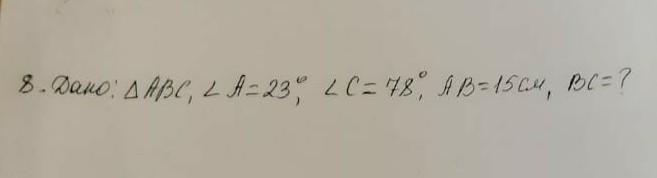 8. Дано: △ABC, ∠A=23°, ∠C=78°, AB=15см, BC=?